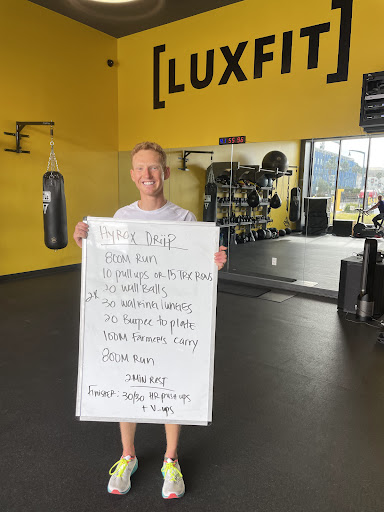 [LUXFIT]
HYROX DRIP
800M Run
10 pull ups or 15 TRX Rows
20 Wall Balls
2x
30 walking lunges
20 Burpee to plate
100M Farmers carry
800M Run
2 MIN REST
finisher: 30/30 HR push ups
+ V-ups